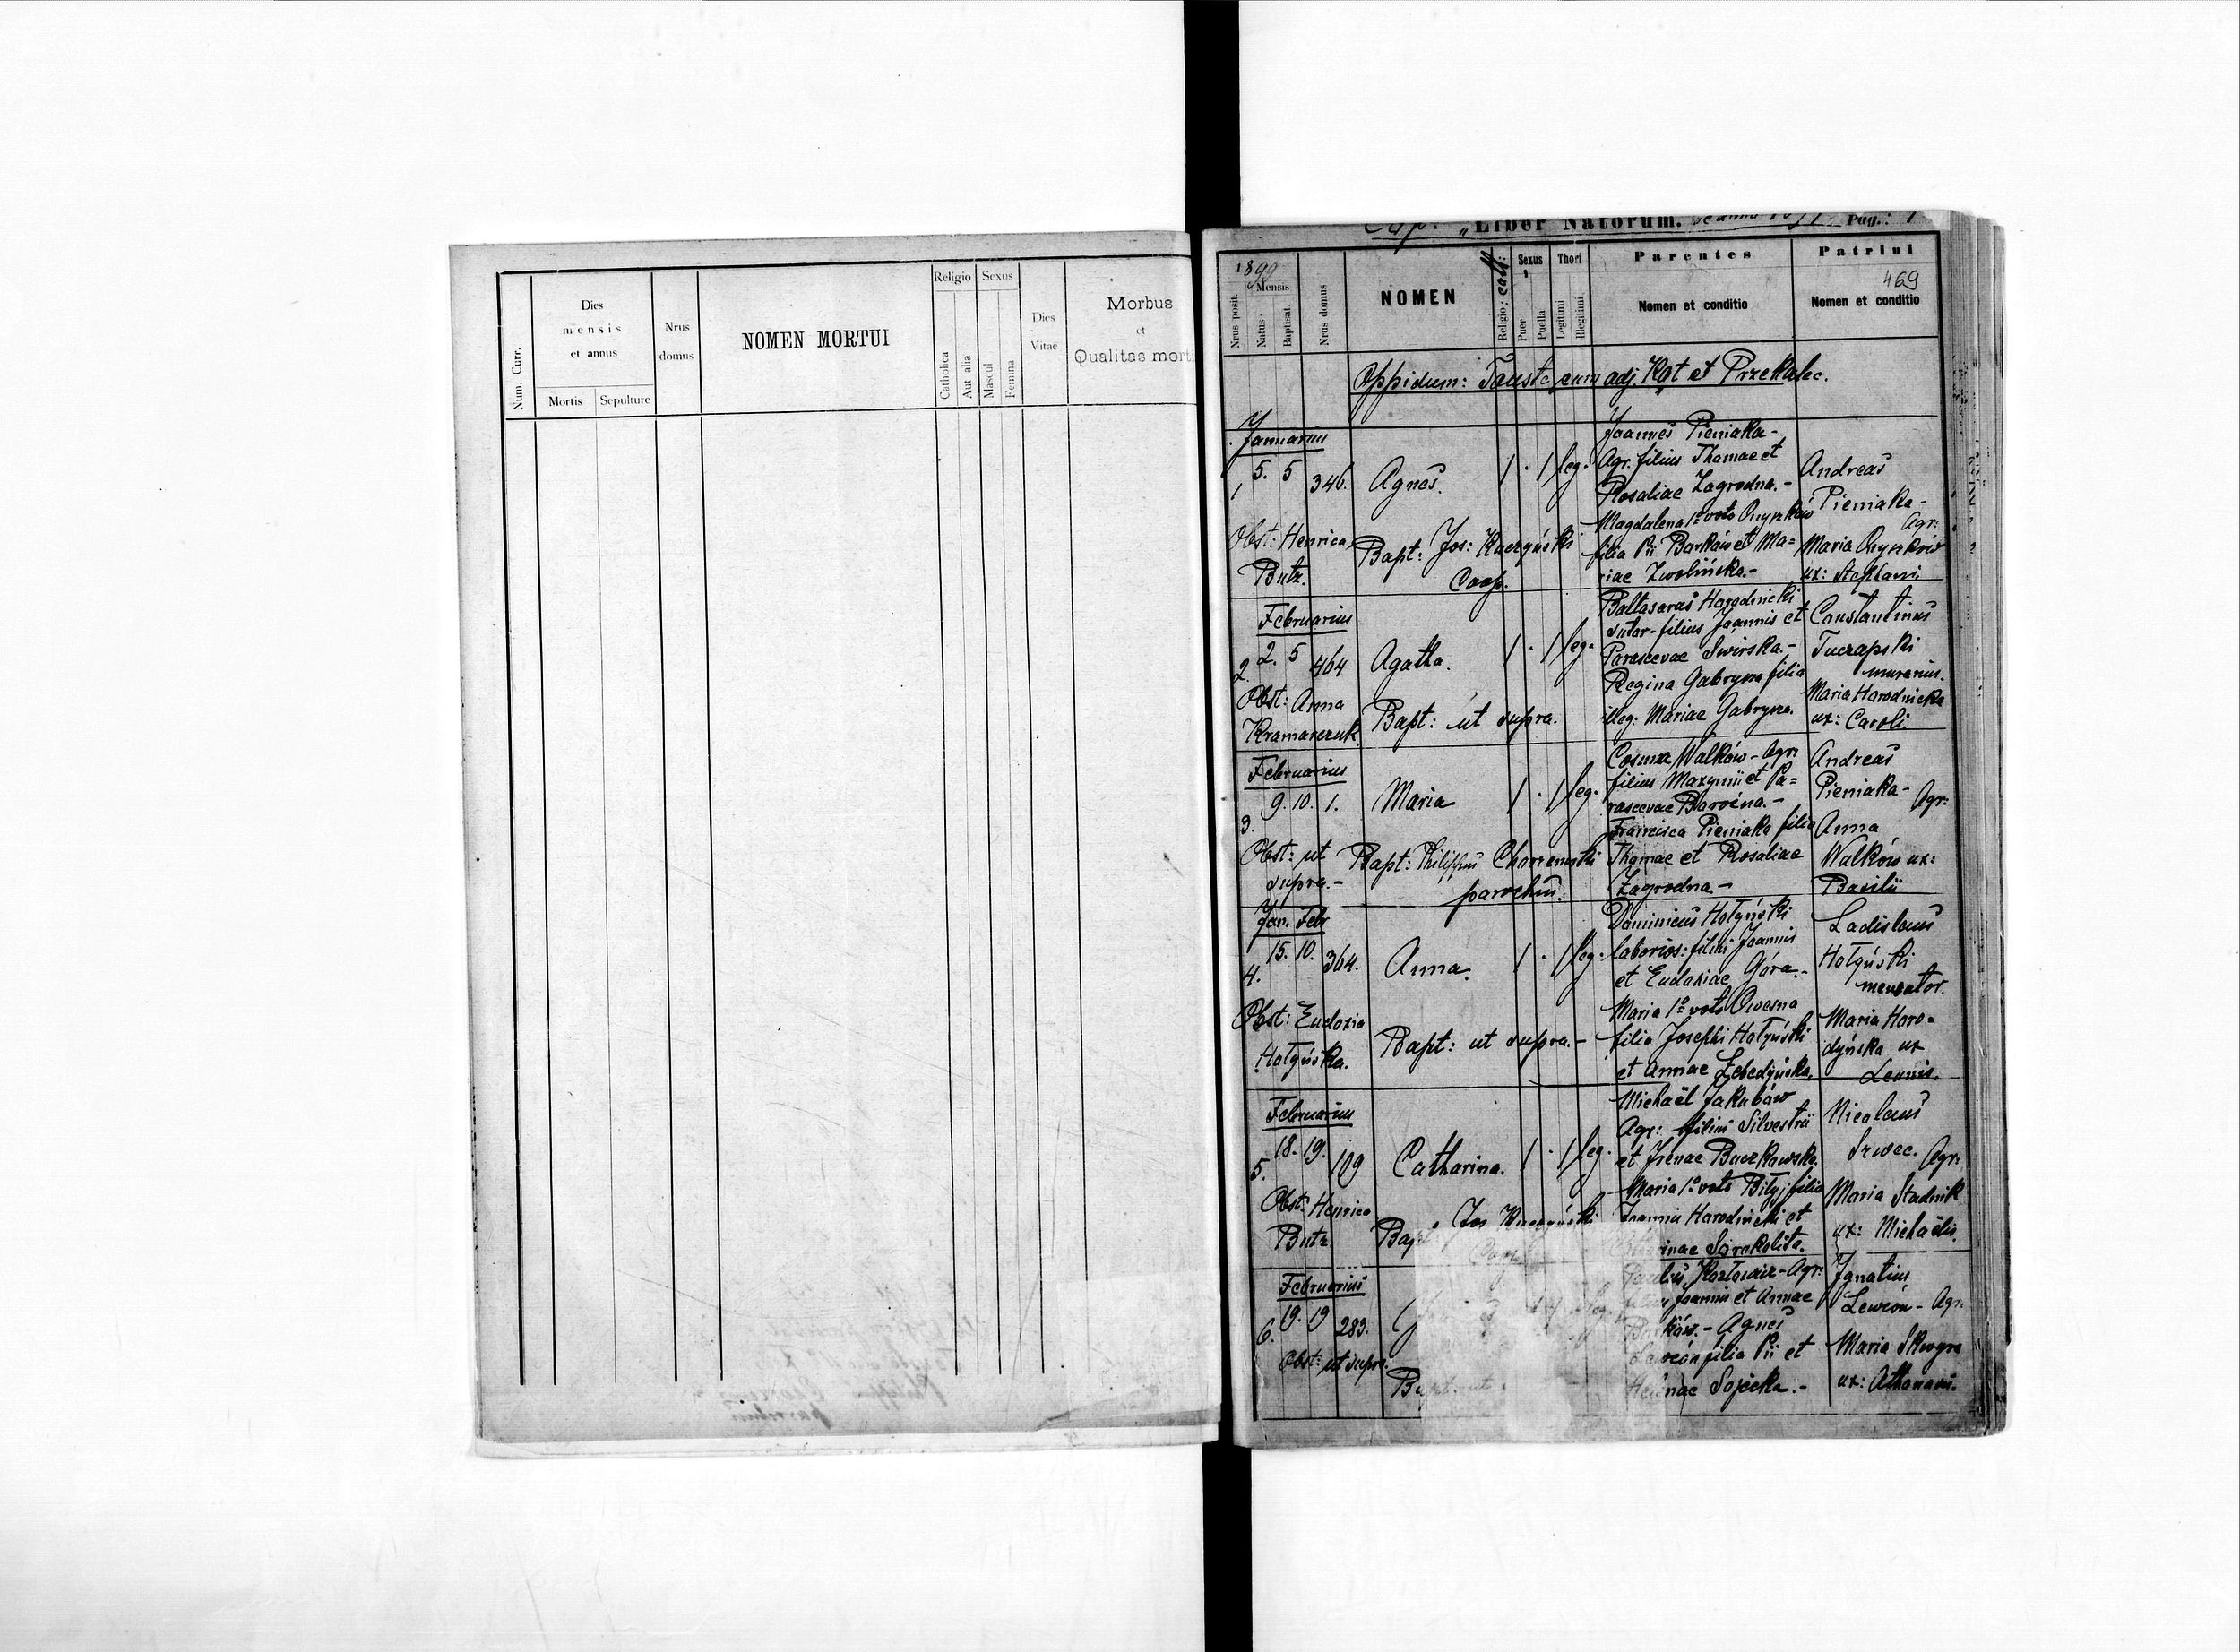 Num. Curr.
Dies mensis et annus
Mortis
Sepulture
Nrus domus
NOMEN MORTUI
Religio
Catholica
Aut alia
Sexus
Mascul
Femina
Dies Vitae
Morbus
et
Qualitas morti
"Liber Natorum. Pag.: 1
1899
Nrus posit.
Mensis
Natus
Baptisat.
Nrus domus
NOMEN
Religio: cath:
Sexus
Puer
Puella
Thori
Legitimi
Illegitimi
Parentes
Nomen et conditio
Patrini
469
Nomen et conditio
Oppidum: Tauste cum adj. Kąt et Przekalec.
Januarius
1 5. 5 346. Agnes. 1 . 1 leg.
Joannes Pieniaka -
Agr. filius Thomae et
Rosaliae Zagrodna. -
Magdalena 1º voto Onyszków
filia Pii Barków et Ma=
riae Zwolińska. -
Andreas
Pieniaka -
Agr:
Maria Onyszków
ux: Stephani.
Obst: Henrica
Butz.
Bapt: Jos: Kuczyński
Coop.
Februarius
2. 2. 5 464 Agatha. 1 . 1 leg.
Baltasarus Horodnicki
sutor - filius Joannis et
Parascevae Swirska. -
Regina Gabrysza filia
illeg: Mariae Gabrysza.
Constantinus
Tuczapski
murarius.
Maria Horodnicka
ux: Caroli.
Obst: Anna
Kramarczuk.
Bapt: ut supra.
Februarius
3. 9. 10. 1. Maria 1 . 1 leg.
Cosma Walków - Agr:
filius Maxymi et Pa=
rascevae
Francisca Pieniaka filia
Thomae et Rosaliae
Zagrodna -
Andreas
Pieniaka - Agr:
Anna
Walków ux:
Basilii
Obst: ut
supra. -
Bapt: Philippus
parochus.
Jan. Febr
4. 15. 10. 364. Anna. 1 . 1 leg.
Dominicus Hołyński
laborios: filius Joannis
et Eudoxiae Góra. -
Maria 1º voto Owesna
filia Josephi Hołyński
et Annae Lebedyńska.
Ladislaus
Hołyński
mercator.
Maria Horo-
dyńska ux
Leonis.
Obst: Eudoxia
Hołyńska.
Bapt: ut supra. -
Februarius
5. 18. 19. 109 Catharina. 1 . 1 leg.
Michaël Jakubów
Agr: filius Silvestrii
et Irenae Buczkowska.
Maria 1º voto Bilyj filia
Joannis Horodnicki et
Nicolaus
Szwec. Agr:
Maria Stadnik
ux: Michaëlis.
Obst: Henrica
Butz
Bapt: Jos Kuczyński
Coop
Februarius
6. 19. 19 283.
Paulus Kozłowicz - Agr:
filius Joannis et Annae
Barków. - Agnes
filia Pii et
Helenae Sojecka. -
Ignatius
Lewcón - Agr:
Maria Skwyra
ux: Athanasii.
Obst: ut supra.
Bapt. ut